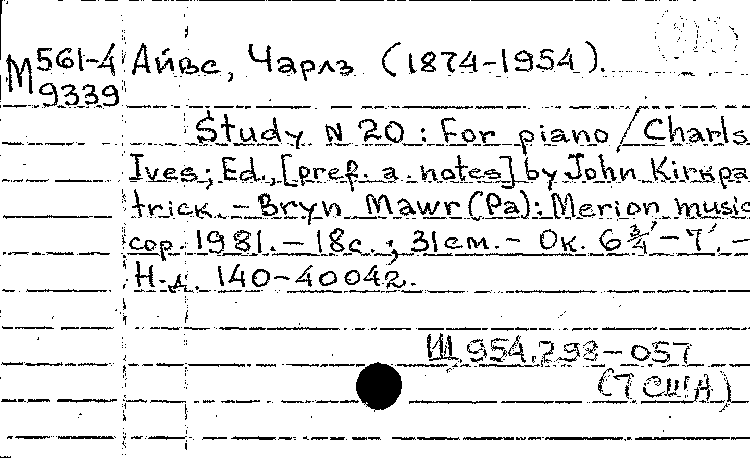 М 561-4
9339
Айвс, Чарлз (1874-1954).
Study N 20 : For piano / Charls
Ives; Ed., [pref. a. notes] by John Kirkpa
trick. - Bryn Mawr (Pa): Merion music
cop. 1981. - 18с.; 31см. - Ок. 6 3/4' - 7'. -
Н.д. 140-40042.
Щ 954.298-057
(7 США)